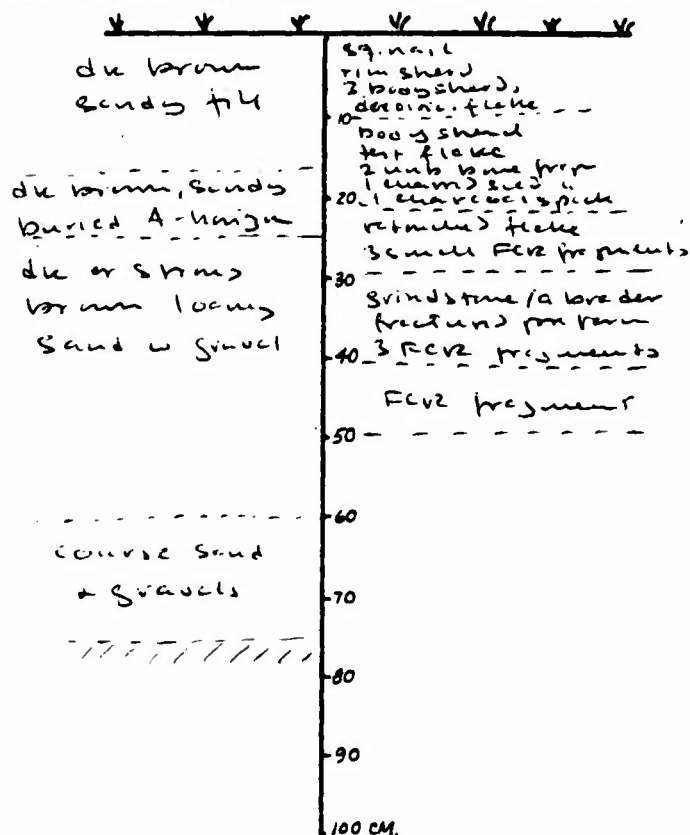 dk brown
sandy fill
dk brown, sandy
buried A-horizon
dk or strong
brown loamy
sand w gravel
course sand
+ gravels
sq. nail
rim sherd
3 bodysherds,
flake
10
body sherd
flake
2 bone frag
1 charred seed "
1 charcoal speck
20
retouched flake
3 small FCR fragments
30
grindstone/abrader
fractured
3 FCR fragments
40
FCR fragment
50
60
70
80
90
100 CM.